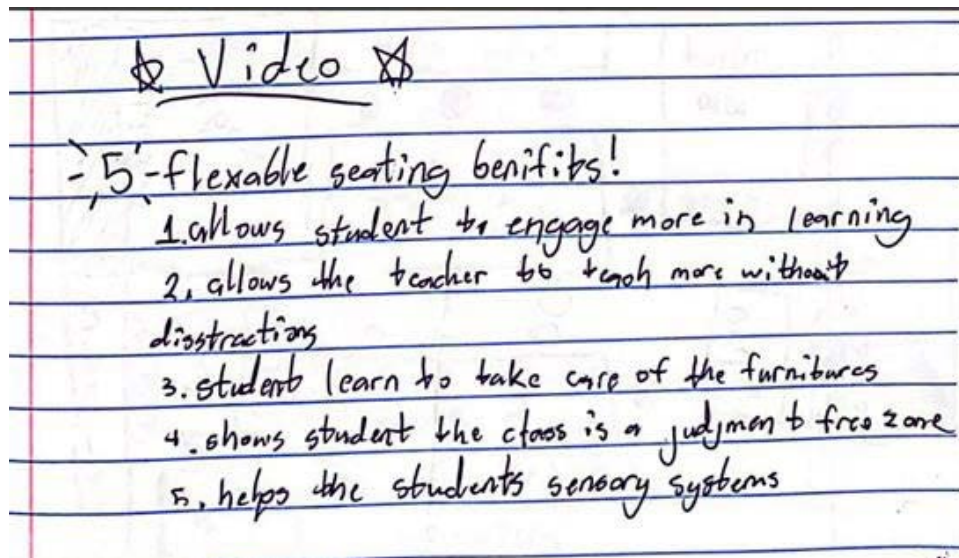 ☆ Video ☆
5 - flexable seating benifits!
1. allows student to engage more in learning
2. allows the teacher to teach more without
disstractions
3. student learn to take care of the furnitures
4. shows student the class is a judjment free zone
5. helps the students sensory systems